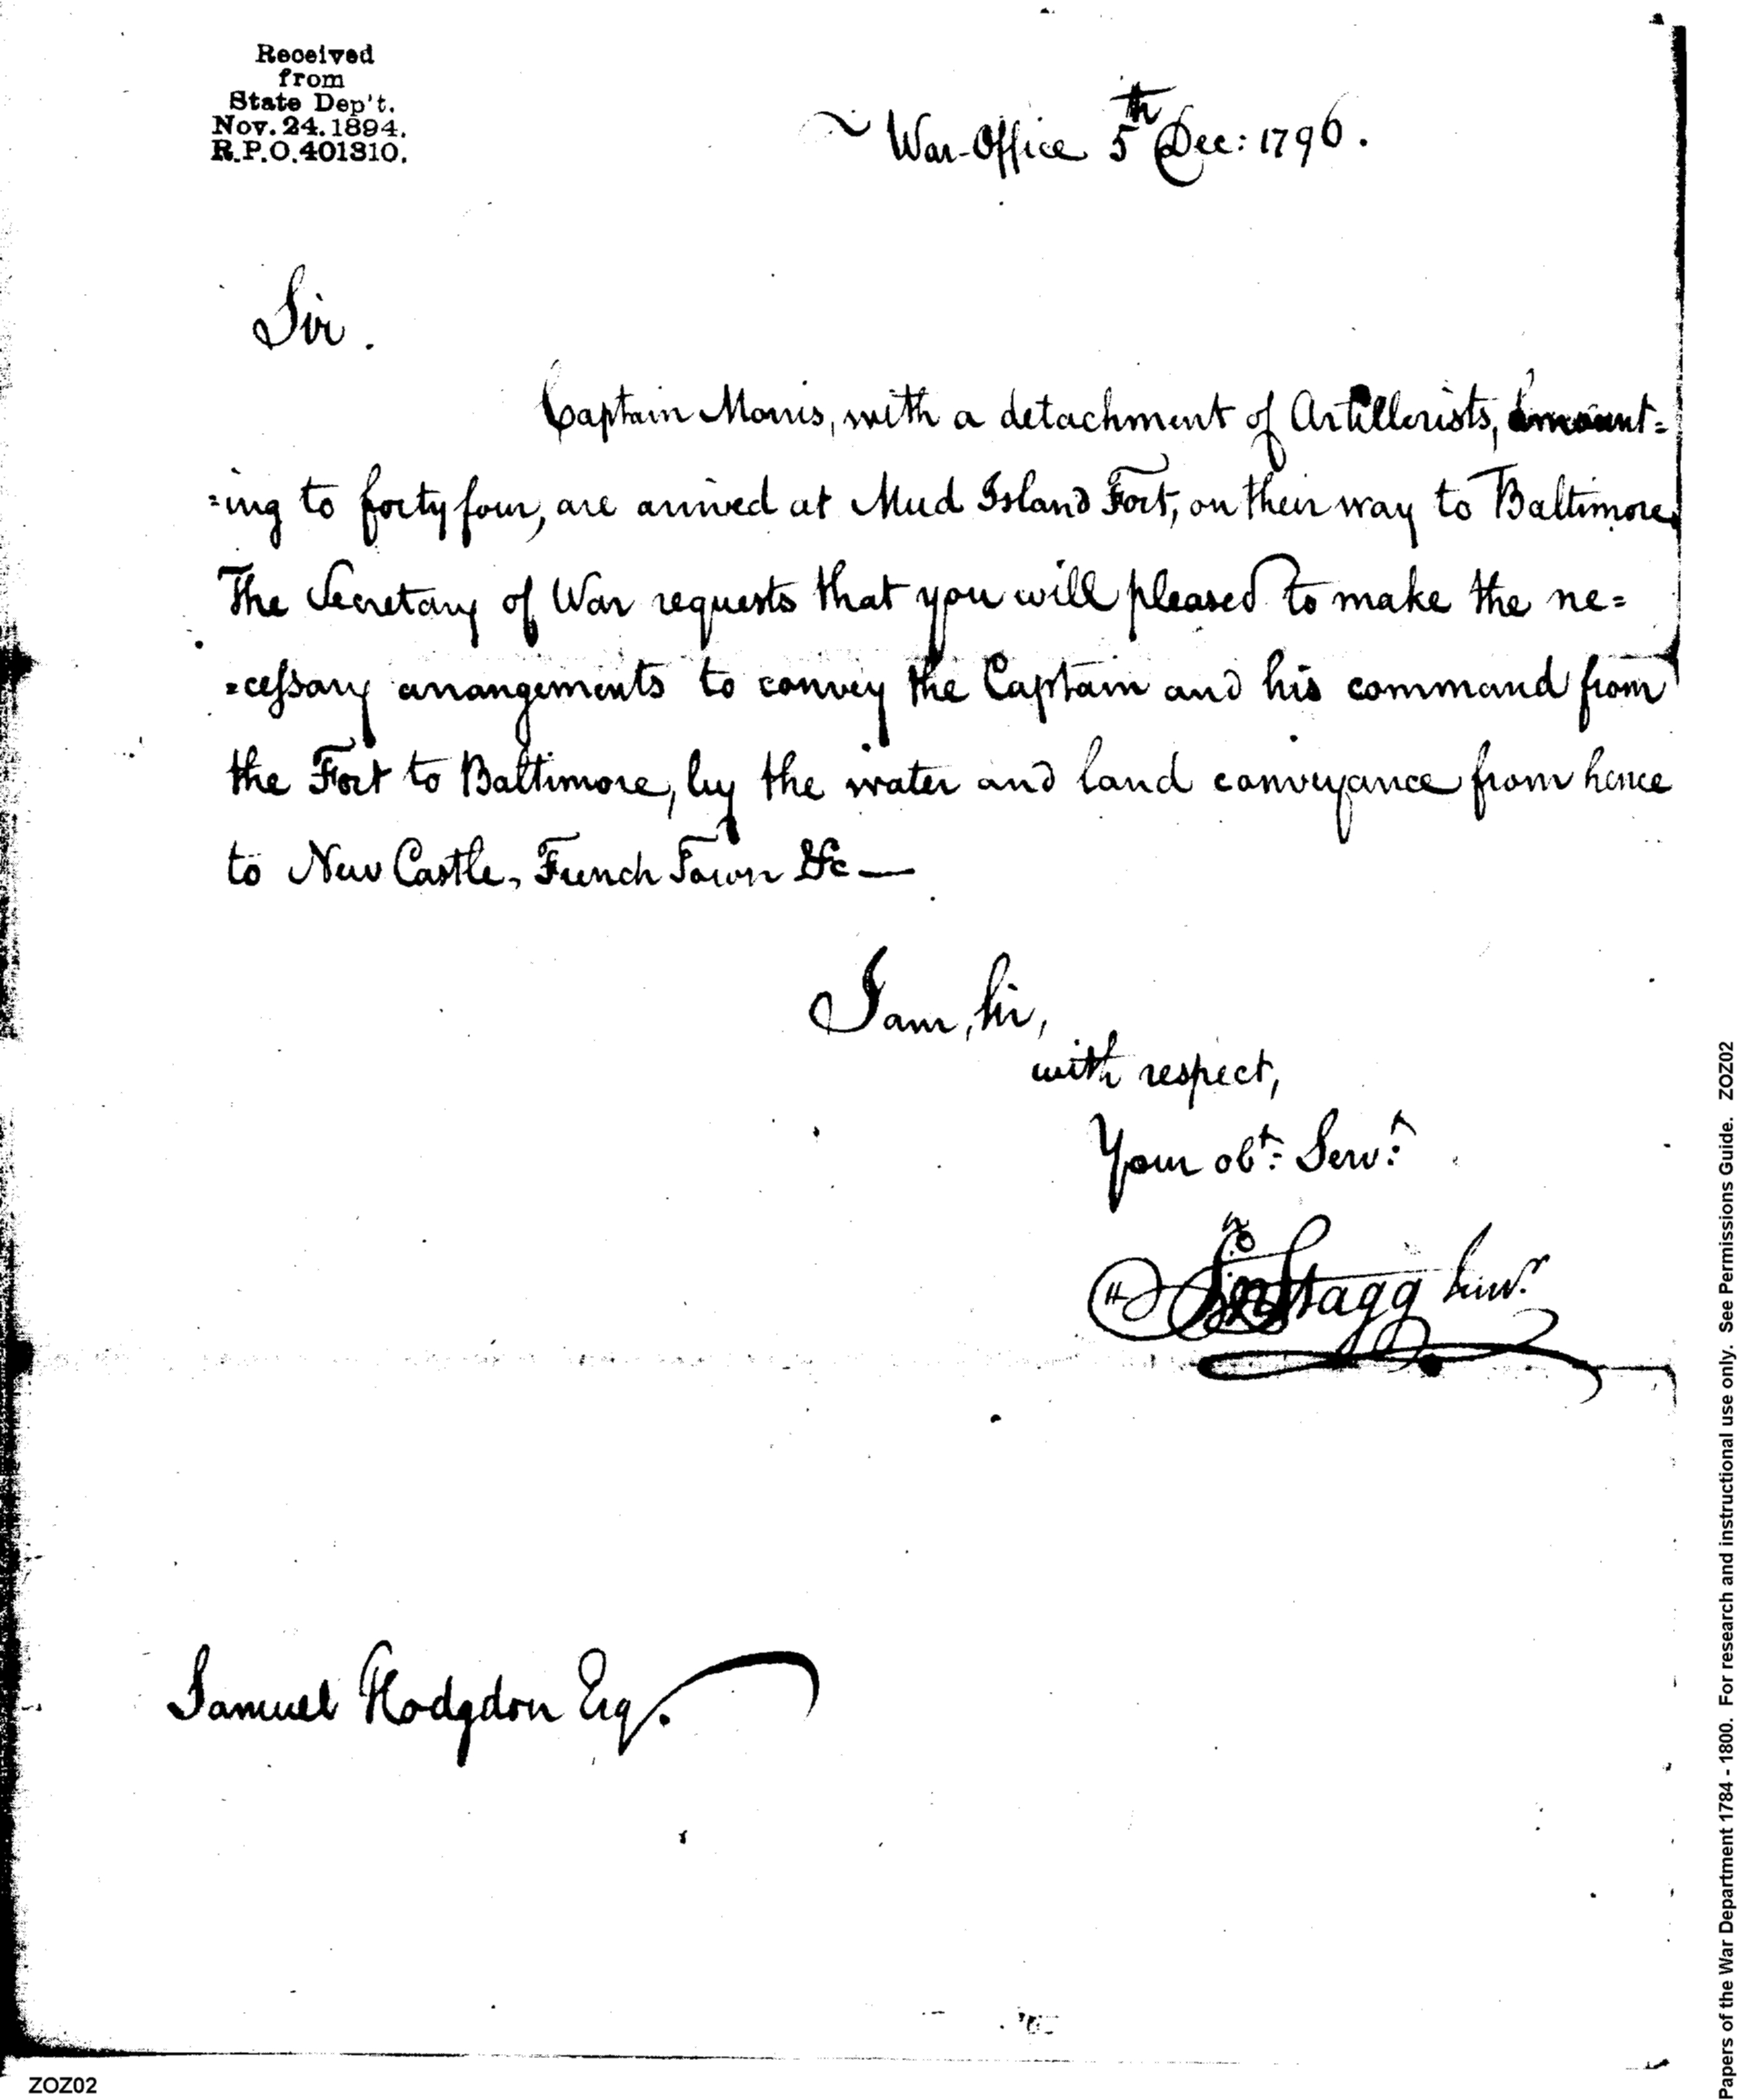 Received
from
State Dep't.
Nov. 24. 1894.
R.P.O. 401310.
War-Office 5th Dec: 1796.
Sir.
Captain Morris, with a detachment of Artillerists, amount=
=ing to forty four, are arrived at Mud Island Fort, on their way to Baltimore.
The Secretary of War requests that you will pleased to make the ne=
=cessary arrangements to convey the Captain and his command from
the Fort to Baltimore, by the water and land conveyance from hence
to New Castle, French Town &c —
I am, Sir,
with respect,
Your obt: Servt:
Jno Stagg Junr.
Samuel Hodgdon Esq.
ZOZ02
Papers of the War Department 1784 - 1800. For research and instructional use only. See Permissions Guide. ZOZ02